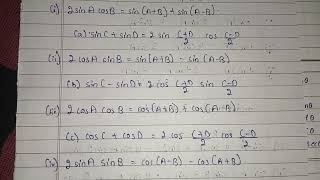 (i) 2 sinA cosB = sin(A+B) + sin(A-B)
(a) sinC + sinD = 2 sin C+D/2 cos C-D/2
(ii) 2 cosA sinB = sin(A+B) - sin(A-B)
(b) sinC - sinD = 2 cos C+D/2 sin C-D/2
(iii) 2 cosA cosB = cos(A+B) + cos(A-B)
(c) cosC + cosD = 2 cos C+D/2 cos C-D/2
(iv) 2 sinA sinB = cos(A-B) - cos(A+B)